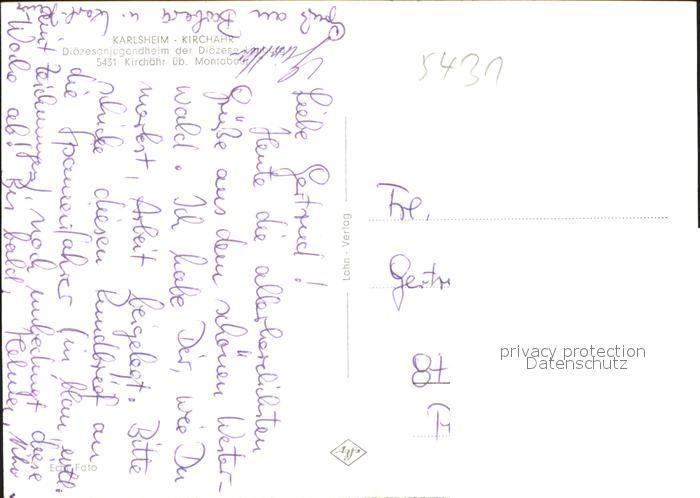 KARLSHEIM - KIRCHÄHR
Diözesanjugendheim der Diözese
5431 Kirchähr üb. Montabaur
5431
Liebe Gertrud!
Heute die allerherzlichsten
Grüße aus dem schönen Wester-
wald. Ich habe Dir, wie Du
merkst, Arbeit beigelegt. Bitte
schicke diesen Rundbrief an
die
mit Zeichnungen) noch unbedingt diese
Woche ab! Bis bald,
Gruß an Barbara u.
Lahn-Verlag
Frl.
Gertr
privacy protection
Datenschutz
Foto